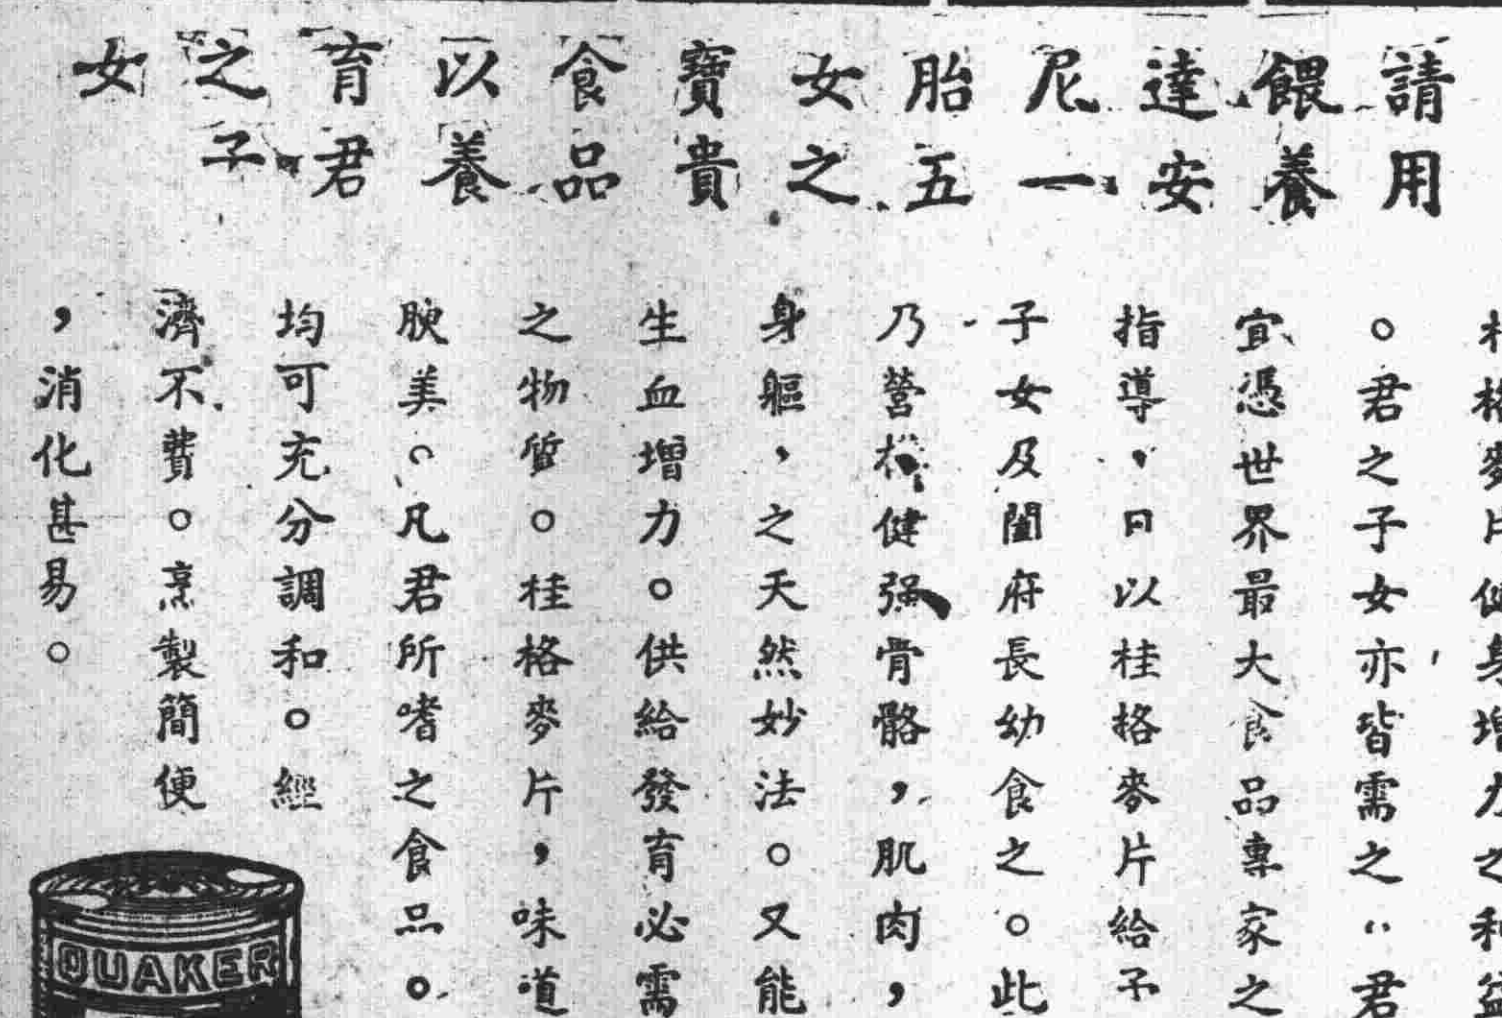 請用
餵養
達安
尼一
胎五
女之
寶貴
食品
以養
育君
之子
女
格麥片健身增力之利益
。君之子女亦皆需之。君
宜憑世界最大食品專家之
指導，日以桂格麥片給子
子女及闔府長幼食之。此
乃營構健强骨骼，肌肉，
身軀，之天然妙法。又能
生血增力。供給發育必需
之物質。桂格麥片，味道
腴美。凡君所嗜之食品。
均可充分調和。經
濟不費。烹製簡便
，消化甚易。
QUAKER